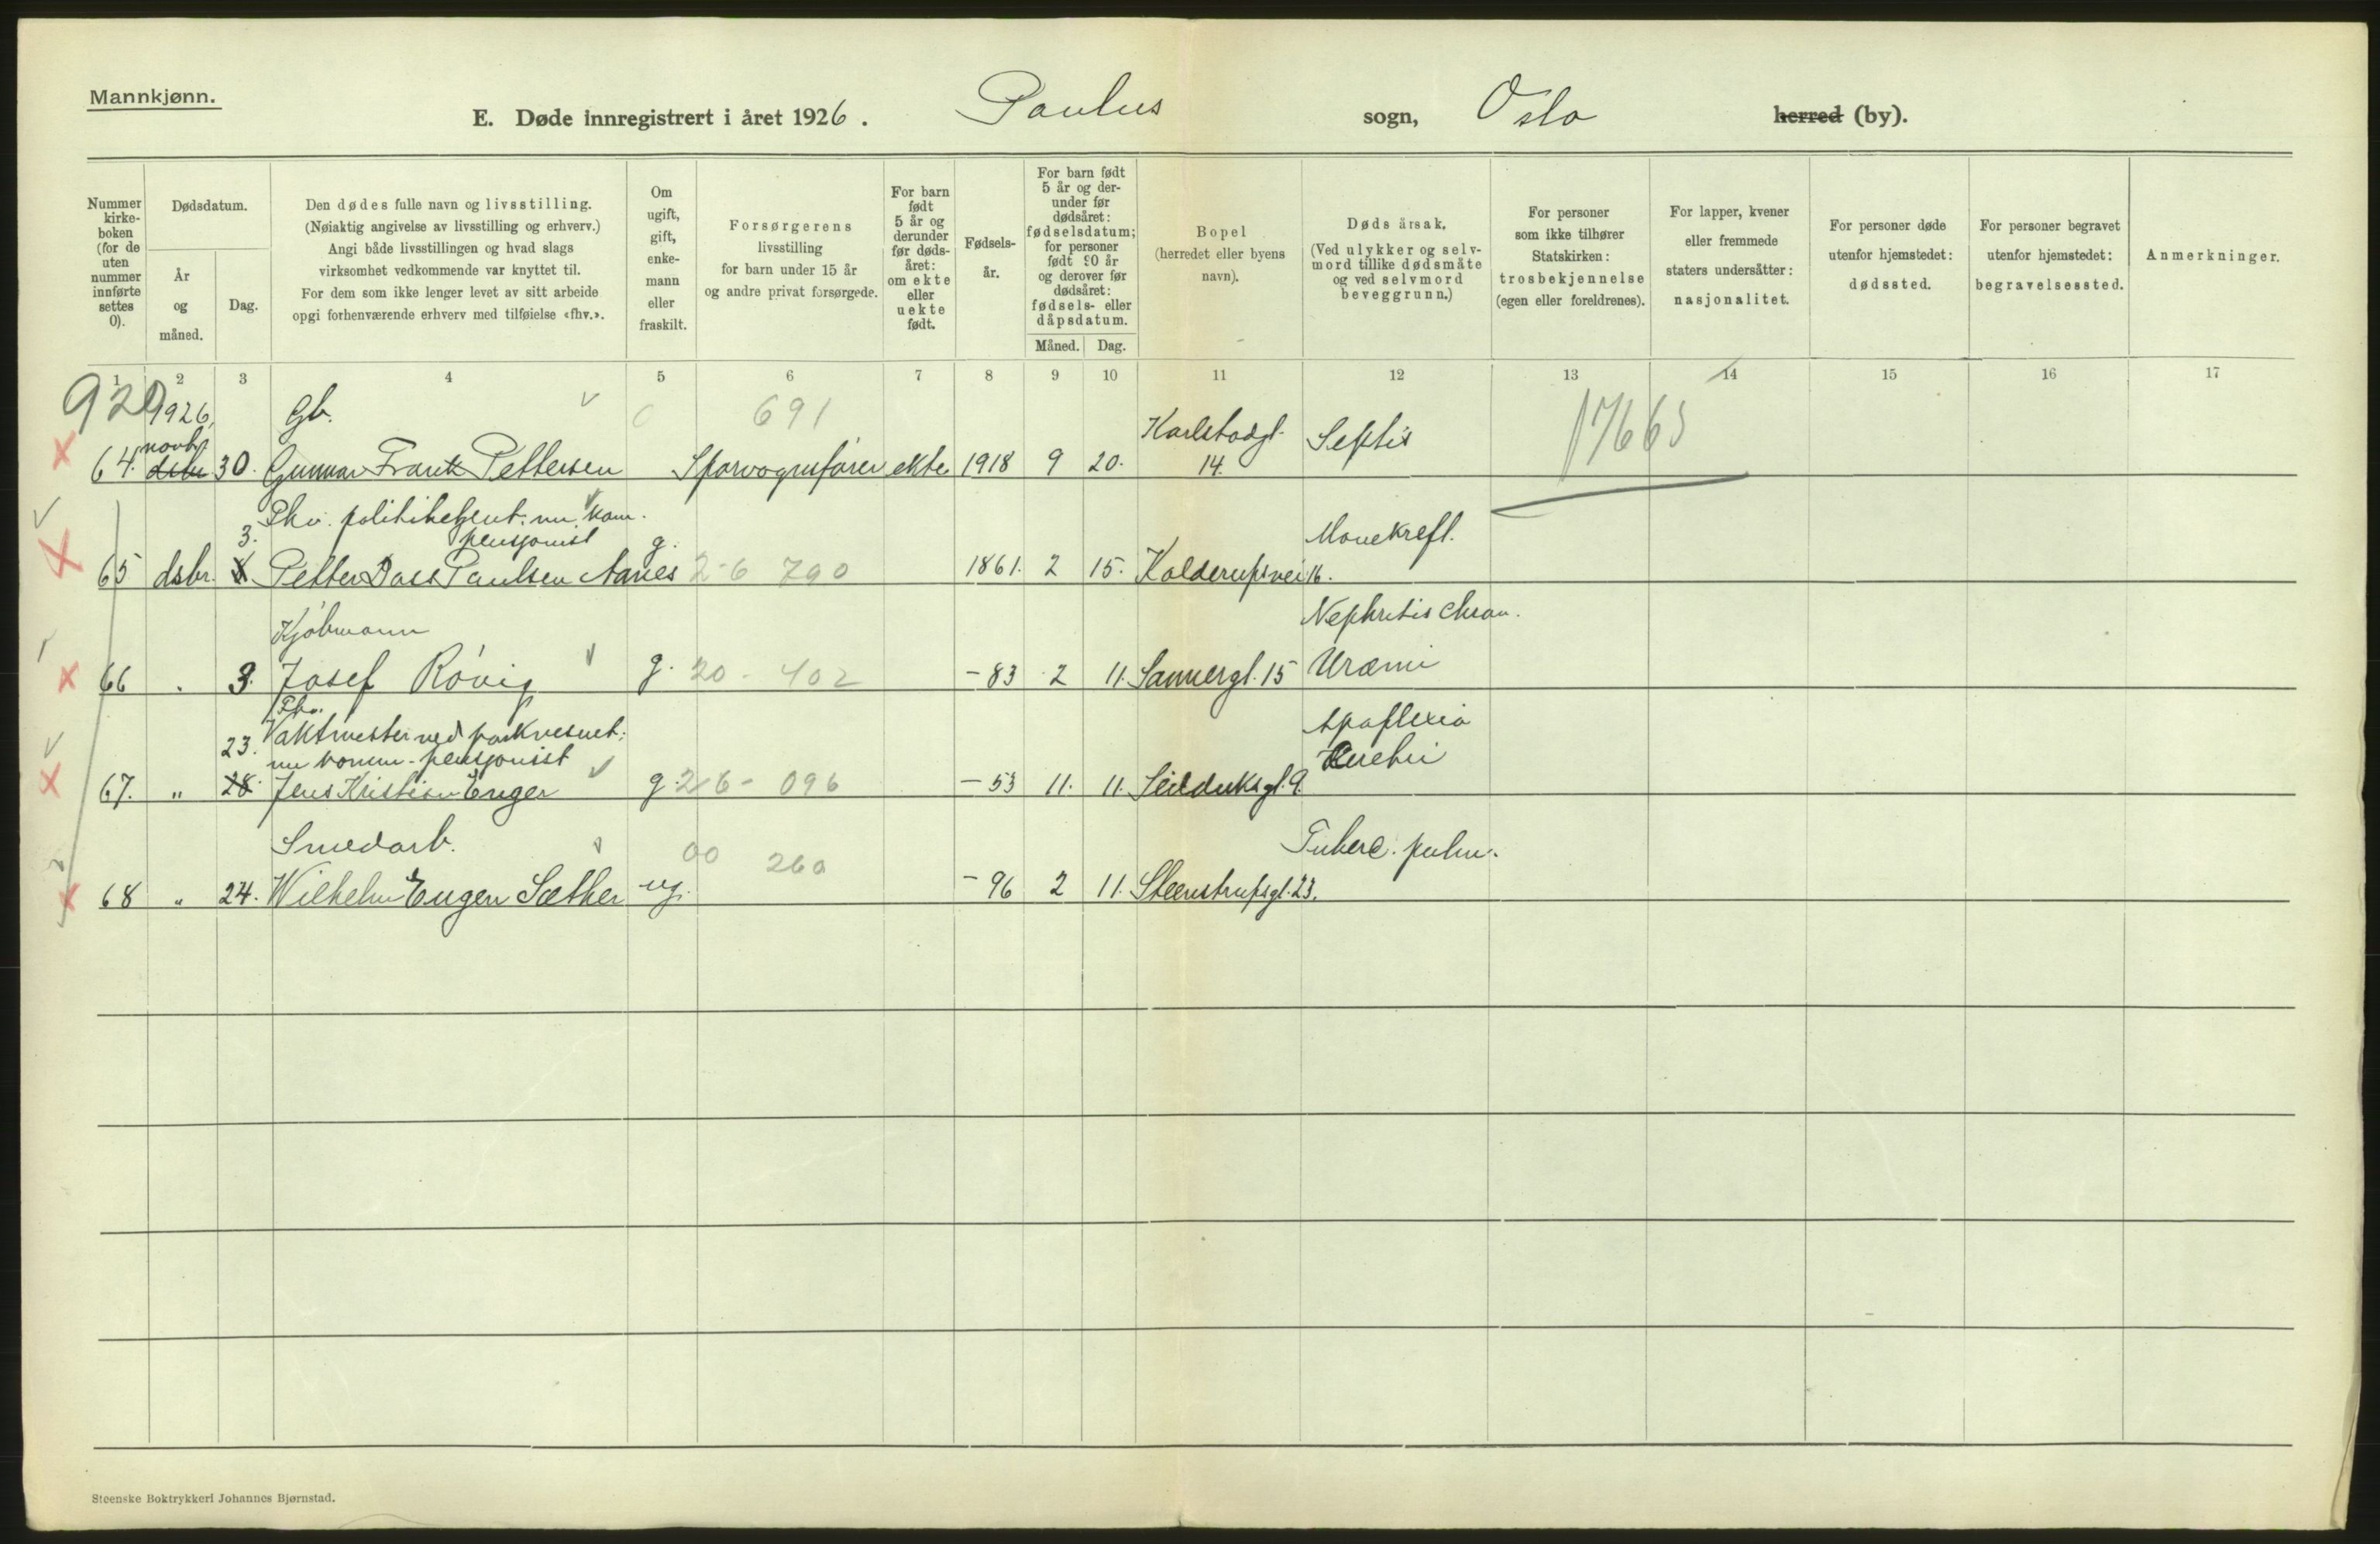 Mannkjønn.
E. Døde innregistrert i året 1926. Paulus sogn, Oslo herred (by).
Nummer kirke-boken (for de uten nummer innførte settes 0).
Dødsdatum.
År og måned.
Dag.
Den dødes fulle navn og livsstilling.
(Nøiaktig angivelse av livsstilling og erhverv.)
Angi både livsstillingen og hvad slags
virksomhet vedkommende var knyttet til.
For dem som ikke lenger levet av sitt arbeide
opgi forhenværende erhverv med tilføielse «fhv.».
Om ugift, gift, enke-mann eller fraskilt.
Forsørgerens
livsstilling
for barn under 15 år
og andre privat forsørgede.
For barn født 5 år og derunder før døds-året: om ekte eller uekte født.
Fødsels-år.
For barn født 5 år og der-under før dødsåret: fødselsdatum; for personer født 90 år og derover før dødsåret: fødsels- eller dåpsdatum.
Måned. Dag.
Bopel
(herredet eller byens
navn).
Døds årsak.
(Ved ulykker og selv-
mord tillike dødsmåte
og ved selvmord
beveggrunn.)
For personer
som ikke tilhører
Statskirken:
trosbekjennelse
(egen eller foreldrenes).
For lapper, kvener
eller fremmede
staters undersåtter:
nasjonalitet.
For personer døde
utenfor hjemstedet:
dødssted.
For personer begravet
utenfor hjemstedet:
begravelsessted.
Anmerkninger.
1 2 3 4 5 6 7 8 9 10 11 12 13 14 15 16 17
920 1926, Gb. 691 Karlstadgt. 17665
novbr
64. dsbr 30. Gunnar Frank Pettersen Sporvognsfører ekte 1918 9 20. 14. Septis
Fhv. politibetjent: nu kom.
3. pensjonist g. Mavekreft.
65 dsbr. Petter Dass Paulsen Aanes 2-6 790 1861. 2 15. Kalderupsvei 16.
Kjøbmann Nephritis chron.
66 . 3. Josef Rövig g. 20 - 402 - 83 2 11. Sannergt. 15 Uræmi
Fhv.
Vaktmester ved parkvesnet: Apoplexia
23. nu komm. pensjonist Cerebri
67. " 28. Jens Kristian Enger g. 26 - 096 - 53 11. 11. Seilduksgt. 9.
Smedarb. 00 260 Tuberc. pulm.
68 " 24. Wilhelm Eugen Sæther ug. - 96 2 11. Steenstrupsgt. 23.
Steenske Boktrykkeri Johannes Bjørnstad.